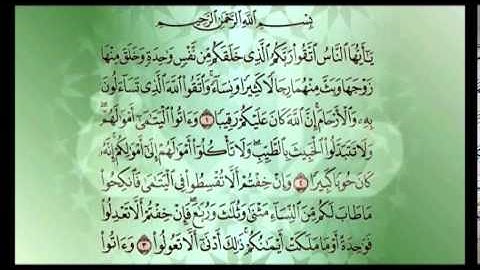 بِسْمِ ٱللَّهِ ٱلرَّحْمَٰنِ ٱلرَّحِيمِ
يَٰٓأَيُّهَا ٱلنَّاسُ ٱتَّقُوا۟ رَبَّكُمُ ٱلَّذِى خَلَقَكُم مِّن نَّفْسٍ وَٰحِدَةٍ وَخَلَقَ مِنْهَا
زَوْجَهَا وَبَثَّ مِنْهُمَا رِجَالًا كَثِيرًا وَنِسَآءً وَٱتَّقُوا۟ ٱللَّهَ ٱلَّذِى تَسَآءَلُونَ
بِهِۦ وَٱلْأَرْحَامَ إِنَّ ٱللَّهَ كَانَ عَلَيْكُمْ رَقِيبًا ١ وَءَاتُوا۟ ٱلْيَتَٰمَىٰٓ أَمْوَٰلَهُمْ
وَلَا تَتَبَدَّلُوا۟ ٱلْخَبِيثَ بِٱلطَّيِّبِ وَلَا تَأْكُلُوٓا۟ أَمْوَٰلَهُمْ إِلَىٰٓ أَمْوَٰلِكُمْ إِنَّهُۥ
كَانَ حُوبًا كَبِيرًا ٢ وَإِنْ خِفْتُمْ أَلَّا تُقْسِطُوا۟ فِى ٱلْيَتَٰمَىٰ فَٱنكِحُوا۟
مَا طَابَ لَكُم مِّنَ ٱلنِّسَآءِ مَثْنَىٰ وَثُلَٰثَ وَرُبَٰعَ فَإِنْ خِفْتُمْ أَلَّا تَعْدِلُوا۟
فَوَٰحِدَةً أَوْ مَا مَلَكَتْ أَيْمَٰنُكُمْ ذَٰلِكَ أَدْنَىٰٓ أَلَّا تَعُولُوا۟ ٣ وَءَاتُوا۟